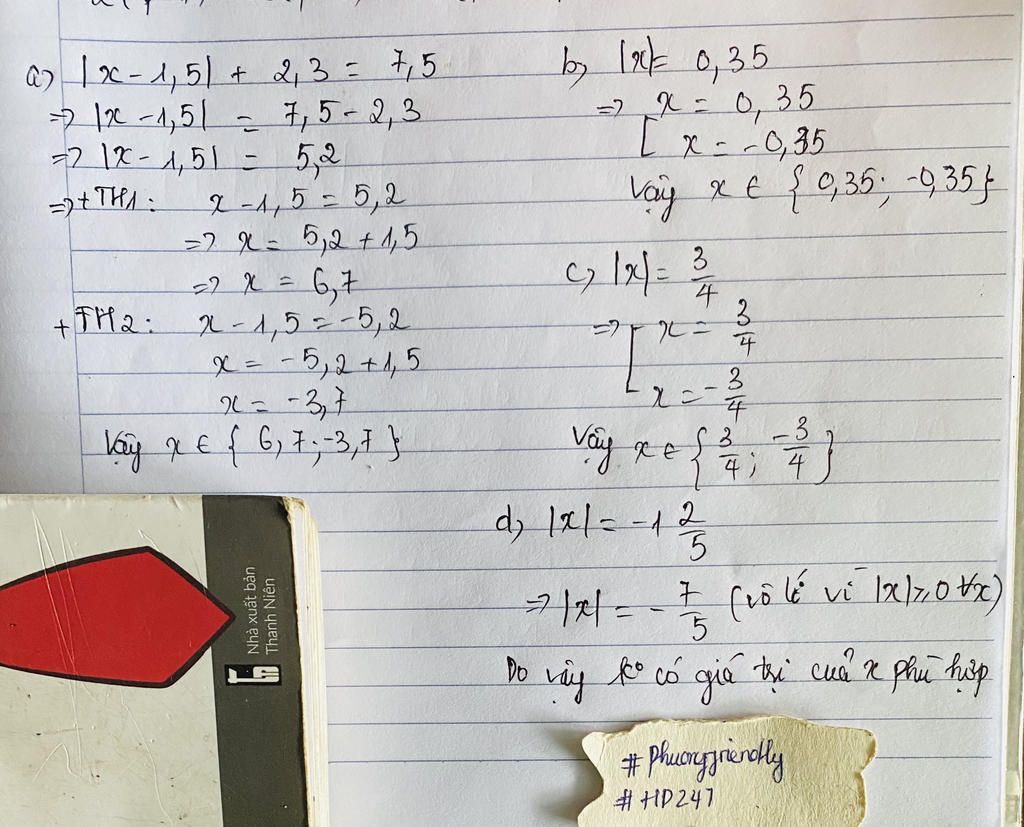 a) |x - 1,5| + 2,3 = 7,5
=> |x - 1,5| = 7,5 - 2,3
=> |x - 1,5| = 5,2
=> + TH1: x - 1,5 = 5,2
=> x = 5,2 + 1,5
=> x = 6,7
+ TH2: x - 1,5 = -5,2
x = -5,2 + 1,5
x = -3,7
Vậy x ∈ { 6,7 ; -3,7 }
b) |x| = 0,35
=> [ x = 0,35
x = -0,35
Vậy x ∈ { 0,35 ; -0,35 }
c) |x| = 3/4
=> [ x = 3/4
x = -3/4
Vậy x ∈ { 3/4 ; -3/4 }
d) |x| = -1 2/5
=> |x| = -7/5 (vô lí vì |x| ≥ 0 ∀x)
Do vậy ko có giá trị của x phù hợp
Nhà xuất bản
Thanh Niên
#phuongfriendly
#HD247